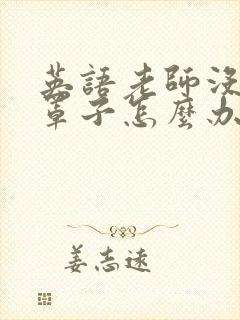 英語老師沒
罩子怎麼办
姜志遠